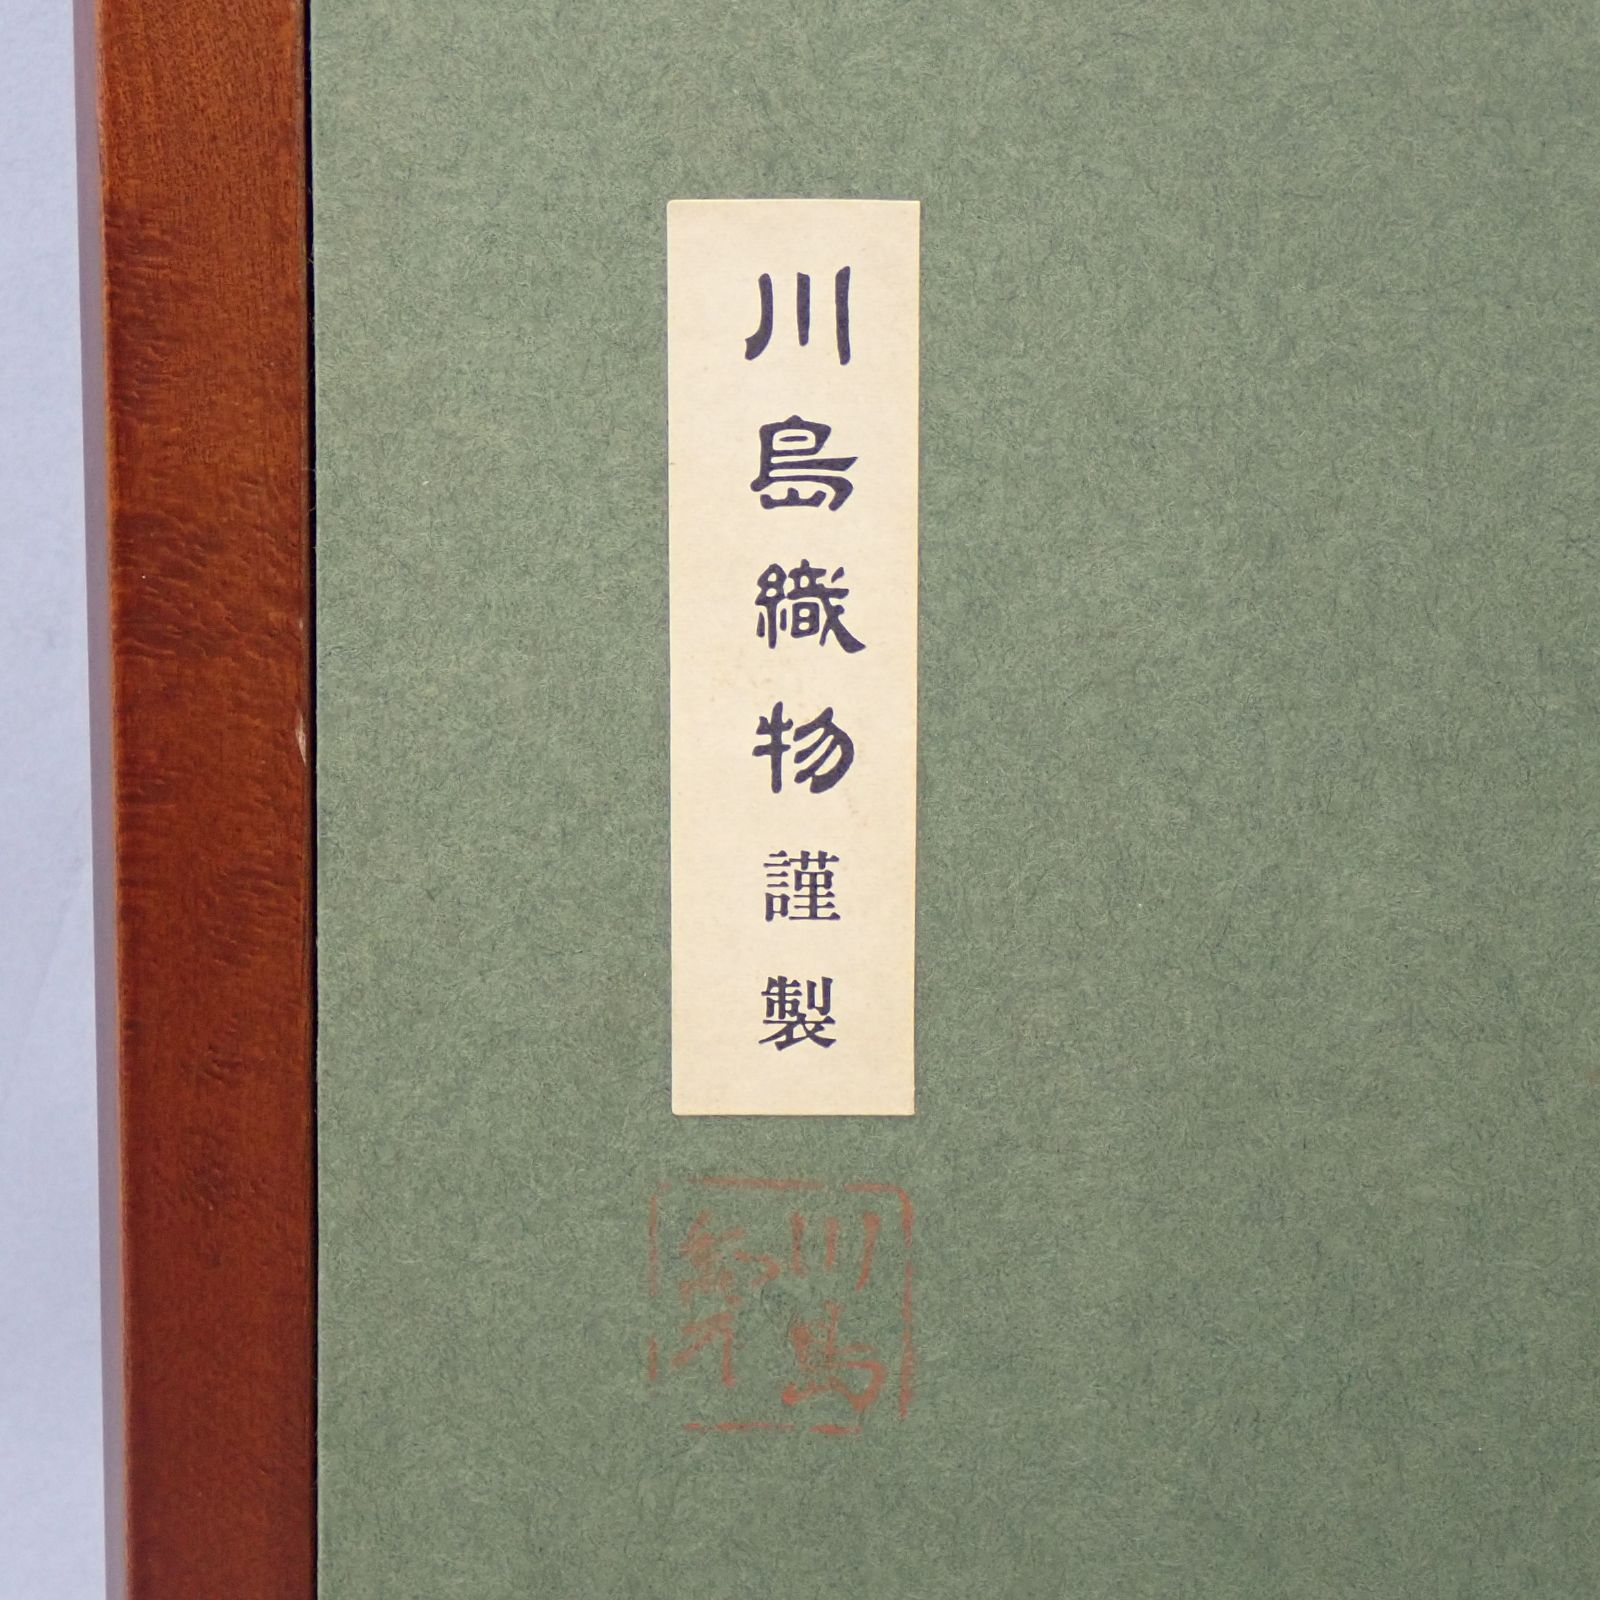 川島織物謹製
川島